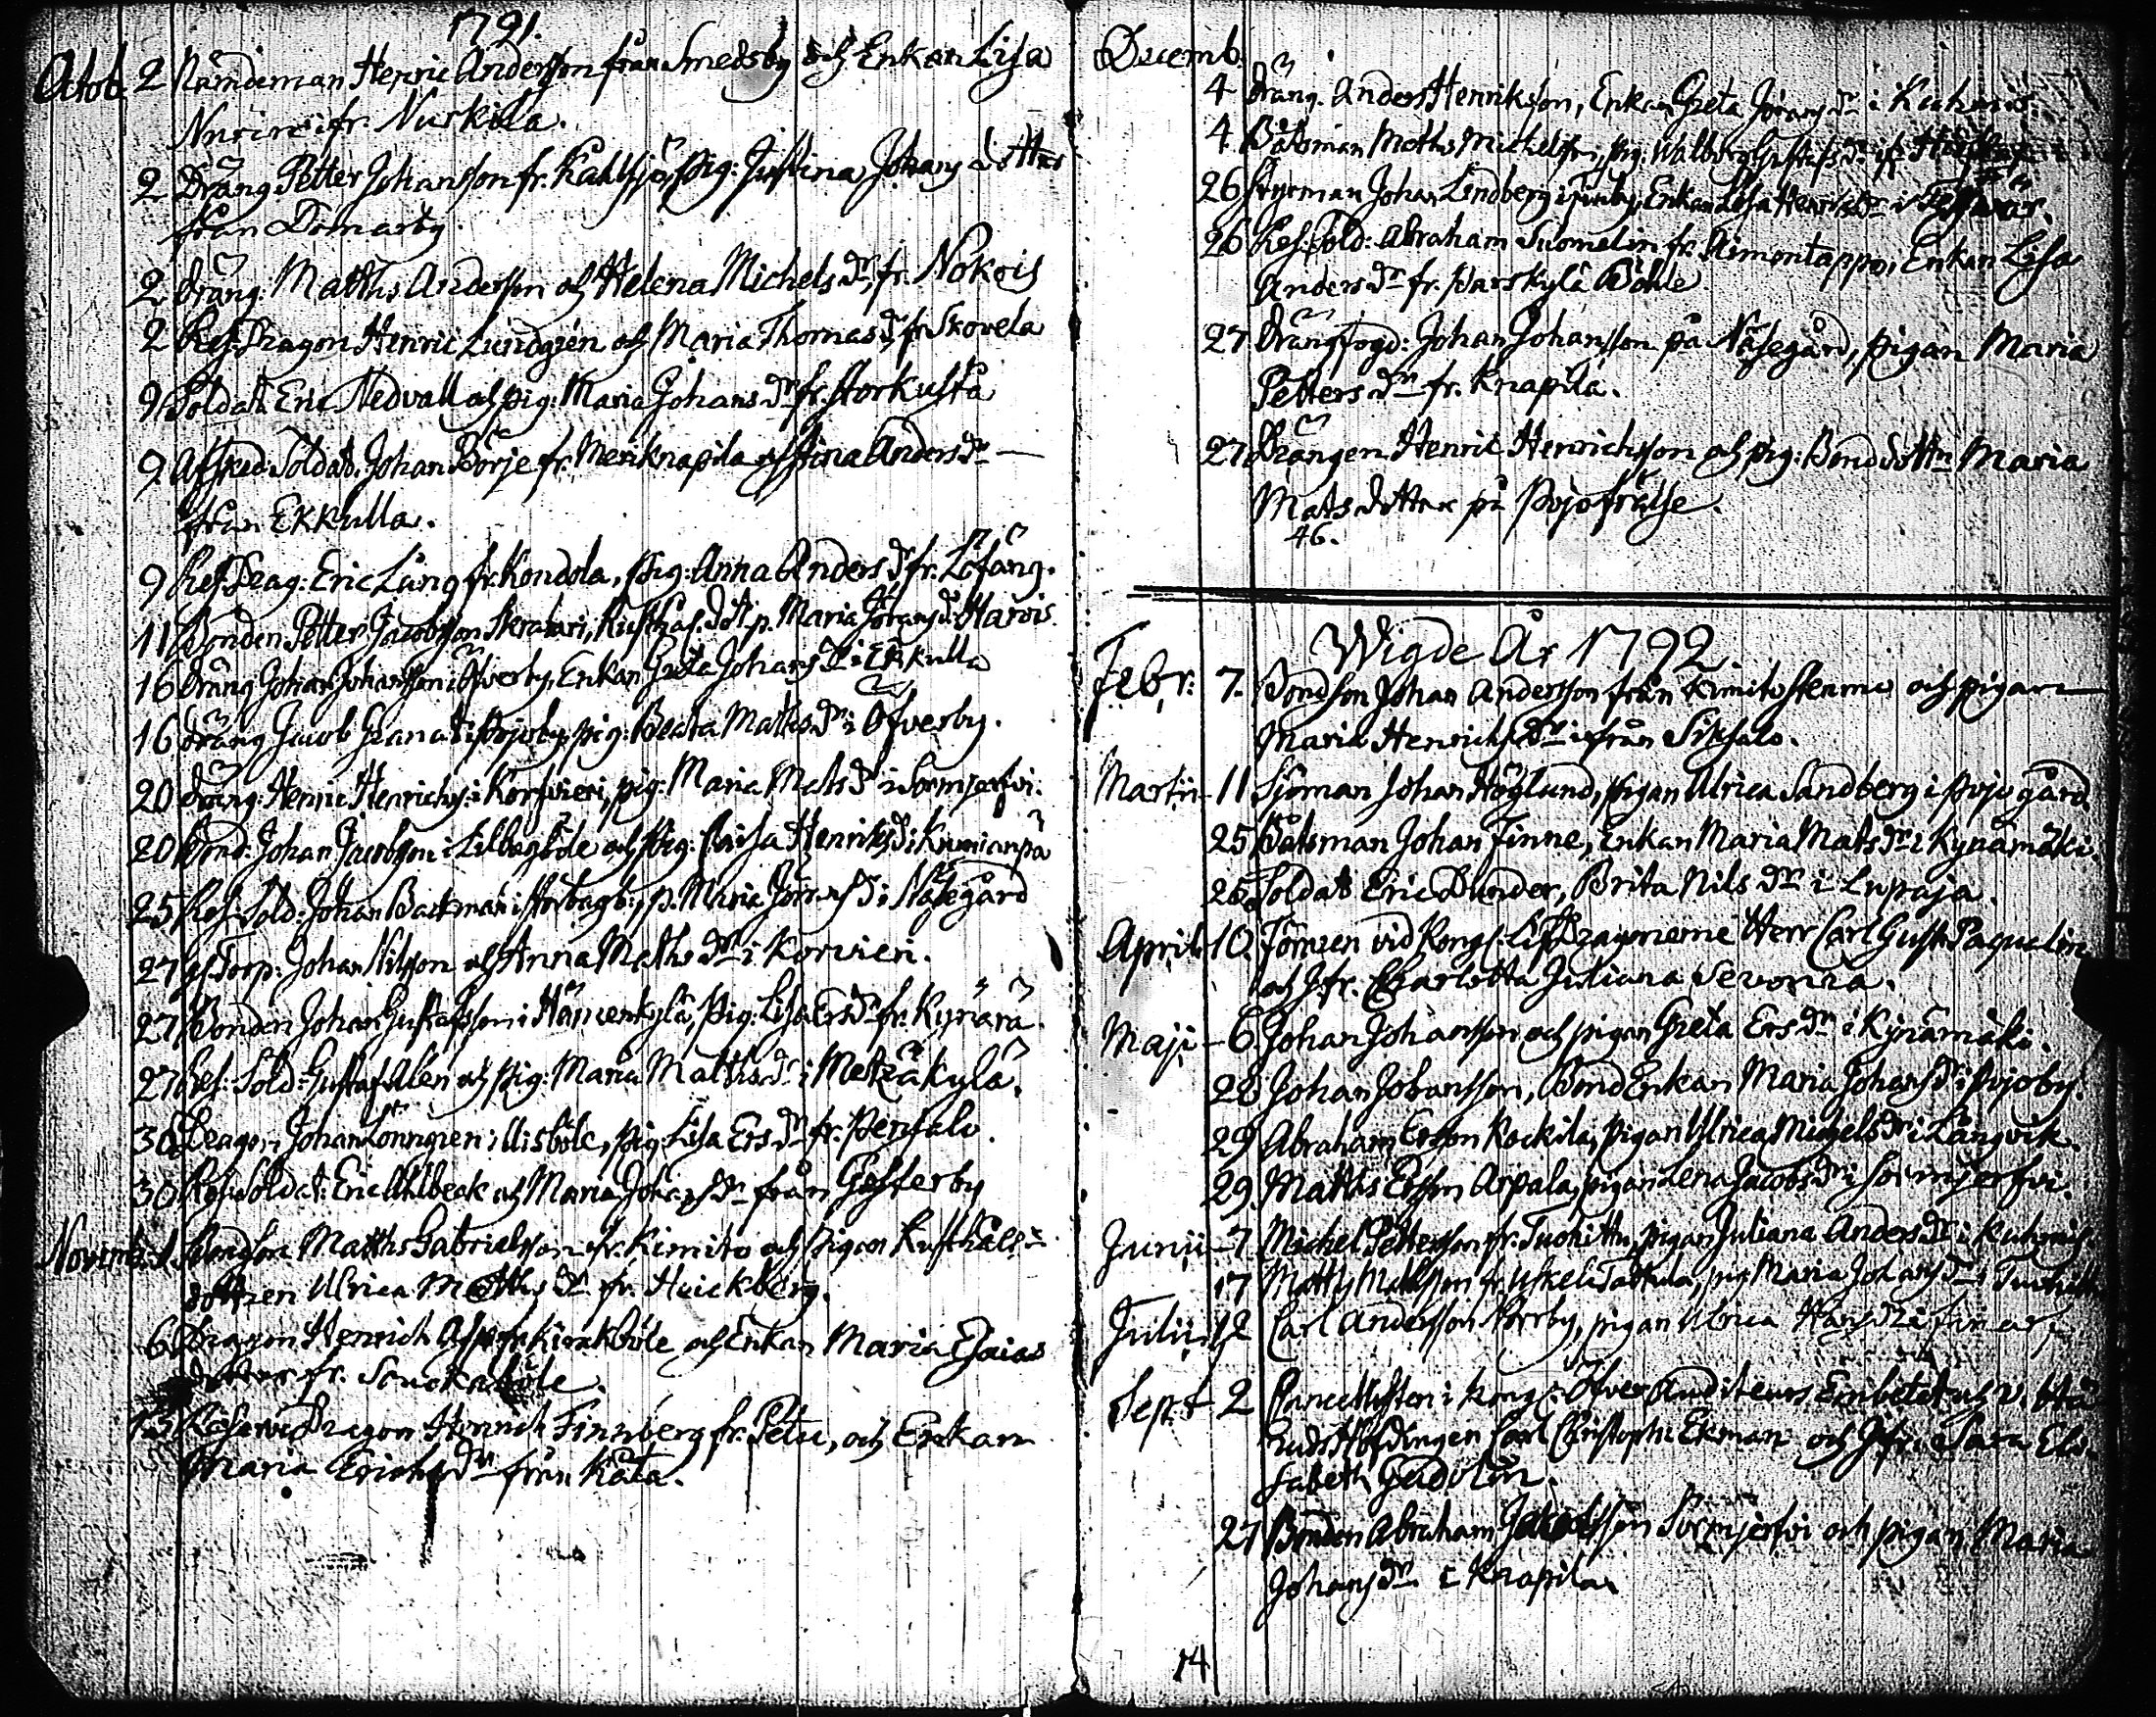 1791.
Octob. 2 Nämdeman Henric Andersson från Smedsby och Enkan Lisa
ifr. Nuskila.
2 Dräng Petter Johansson fr. pig: Justina Johans dotter
från Domarby.
2 dräng: Matths Andersson och Helena Michels dr, fr. Nokois
2 Res: Dragon Henric Lundgrén och Maria Thomas dr fr. Skovela
9 Soldat Eric Nedvall och pig: Maria Johans dr fr. Storkusta
9 Afsked: Soldat. Johan Börje fr. Meriknapila och Stina Anders dr
från Ekkulla.
9 Res. Drag: Eric Lång fr. Kondola, pig: Anna Anders dr fr. Löfäng.
11 Bonden Petter Jacobsson p. Maria Jörans dr. Harvis.
16 dräng Johan Johansson i Öfverby, Enkan Greta Johans dr i Ekkulla
16 dräng Jacob Granat i Pojoby, pig: Beata Matts dr i Öfverby.
20 dräng: Henric Henrichss. i Korfvieri, pig: Maria Mats dr i Sormjerfvi.
20 Bond: Johan Jacobsson i Lillbagböle och pig: Caisa Henriks dr i
25 Res: Sold: Johan Backman i Storbagb:, p. Maria Jörans dr i Näsegård
27 Torp: Johan Nilsson och Anna Matts dr i Korvieri.
27 Bonden Johan Gustafsson i Hämenkylä, pig: Lisa Ers dr fr. Kynärä.
27 Res: Sold: Gustaf Alén och pig: Maria Matths dr i Metzäkylä.
30 Dragon Johan Lönngren i Illisböle, pig Lisa Ers dr fr. Persalo.
30 Res: Soldat: Eric Ahlbeck och Maria Johans dr från Gesterby
Novemb. 1. Bondson Matths Gabrielsson fr. Kimito och pigan Rusthåll:
dottren Ulrica Matths dr. fr. Heickberg.
6 Dragon Henrich Asp fr. och Enkan Maria Esaias
dotter fr.
13 Reserve Dragon Henrich Finnberg fr. Petu, och Enkan
Maria Erichs dr från Kåta.
Decemb.
4 dräng. Anders Henriksson, Enkan Greta Jörans dr i Kuhmis.
4. Båtsman Matths Michelss: pig: Walborg Gustafs dr
26 Styrman Johan Lindberg i Finby, Enkan Lisa Henriks dr i
26 Res: Sold: Abraham Suomelin fr. Aimontappo, Enkan Lisa
Anders dr fr. Parskylä Böhle
27 Drängfogd: Johan Johansson på Näsegård, pigan Maria
Petters dr fr. Knapila.
27 Drängen Henric Henrichsson och pig: Bonddottr Maria
Matsdotter på Pojo frälse.
46.
Wigde År 1792
Febr: 7. Bondson Johan Andersson från Kimito och pigan
Maria Henrichs dr ifrån Siksalo.
Martii 11 Sjöman Johan Höglund, pigan Ulrica Sandberg i Pojo gård
25 Båtsman Johan Finne, Enkan Maria Mats dr i Kynämäki.
25 Soldat Eric Dunder, Brita Nils dr i Lupaja.
April. 10. Föraren vid Kongl: Lif Dragonerne Herr Carl Gust: Paqualin
och Jfr. Charlotta Juliana Sevonia.
Maji 6. Johan Johansson och pigan Greta Ers dr i Kynämäki.
28 Johan Johansson, BondEnkan Maria Johans dr i Pojoby.
29 Abraham Ersson Kockila, pigan Ulrica Michels dr i Långvik.
29. Matths Ersson Arpala, pigan Lena Jacobs dr i Sormjerfvi.
Junii 7 Michel Pettersson fr. Tuohittu, pigan Juliana Anders dr i Kuhmis.
17 Matts Mattsson fr. Uskela Tattula, pig Maria Johans dr i
Julii 12 Carl Andersson Norrby, pigan Ulrica Hans dr i
Sept 2 Cancellisten i Kongl: Öfver Auditeurs Embetet och V. Hä-
radsHöfdingen Carl Christoph: Ekman och Jfr: Sara Eli-
sabeth Gadolin.
27 Bonden Abraham Jakobsson Sormjerfvi och pigan Maria
Johans dr i Knapila.
14